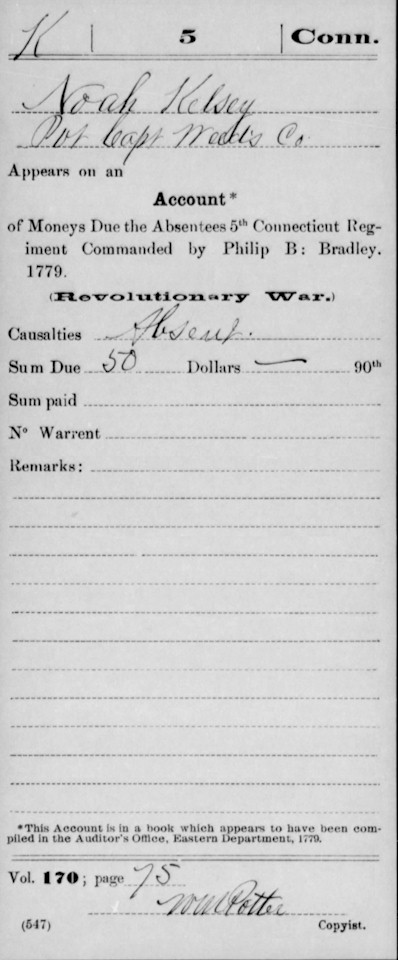 K | 5 | Conn.
Noah Kelsey
Pvt Capt Weeds Co
Appears on an
Account*
of Moneys Due the Absentees 5th Connecticut Reg-
iment Commanded by Philip B: Bradley.
1779.
(Revolutionary War.)
Causalties Absent.
Sum Due 50 Dollars — 90th
Sum paid
No Warrent
Remarks:
*This Account is in a book which appears to have been com-
piled in the Auditor's Office, Eastern Department, 1779.
Vol. 170; page 75
Wm Potter
(547) Copyist.